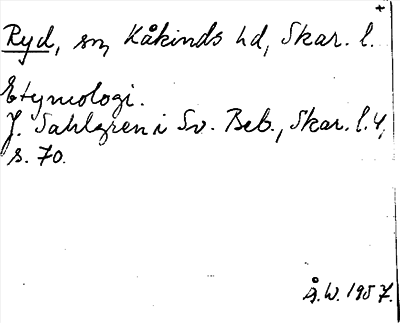 +
Ryd, sn, Kåkinds hd, Skar. l.
Etymologi.
J. Sahlgren i Sv. Beb., Skar. l. 4,
s. 70.
Å.W. 1957.